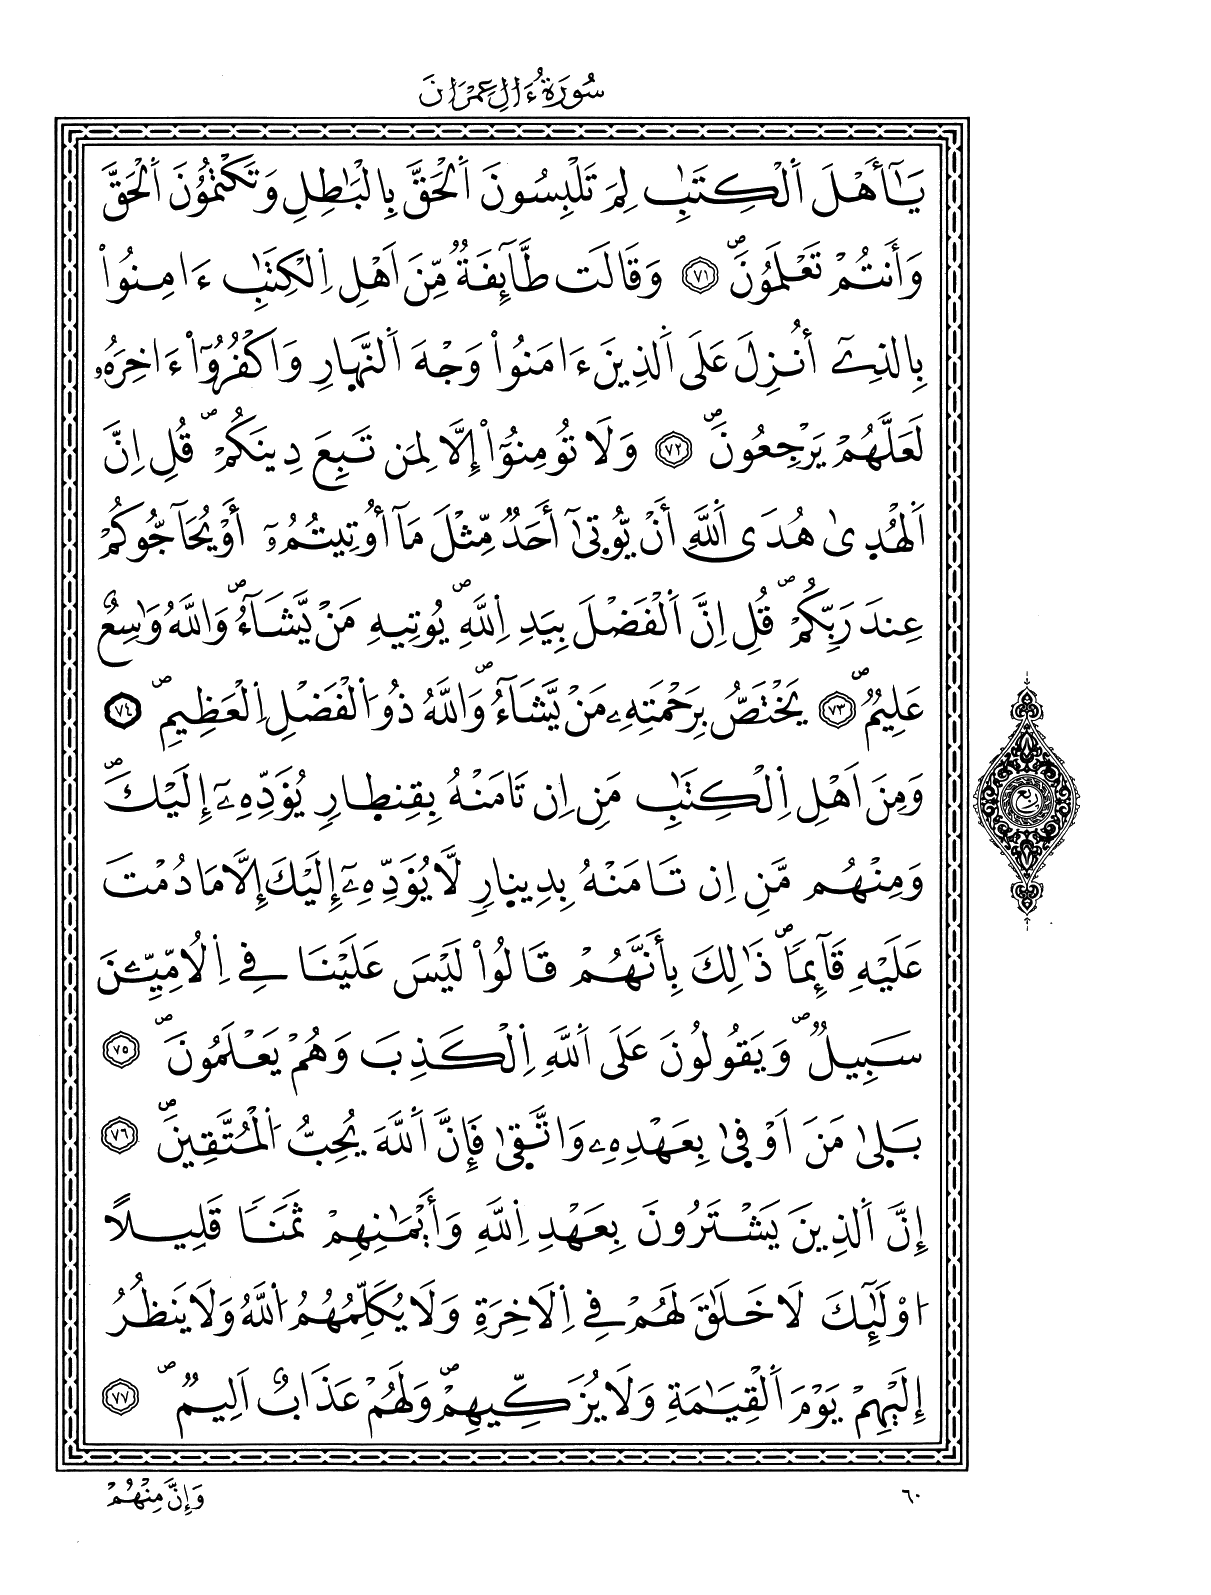 سُورَةُ ءَالِ عِمْرَانَ
يَٰٓأَهْلَ اَ۬لْكِتَٰبِ لِمَ تَلْبِسُونَ اَ۬لْحَقَّ بِالْبَٰطِلِ وَتَكْتُمُونَ اَ۬لْحَقَّ
وَأَنتُمْ تَعْلَمُونَۖ ٧١ وَقَالَت طَّآئِفَةٞ مِّنَ اَهْلِ اِ۬لْكِتَٰبِ ءَامِنُواْ
بِالذِےٓ أُنزِلَ عَلَى اَ۬لذِينَ ءَامَنُواْ وَجْهَ اَ۬لنَّهَارِ وَاكْفُرُوٓاْ ءَاخِرَهُۥ
لَعَلَّهُمْ يَرْجِعُونَۖ ٧٢ وَلَا تُومِنُوٓاْ إِلَّا لِمَن تَبِعَ دِينَكُمْۖ قُلِ اِنَّ
اَ۬لْهُد۪يٰ هُدَي اَ۬للَّهِ أَنْ يُّوت۪يٰٓ أَحَدٞ مِّثْلَ مَآ أُوتِيتُمُۥٓ أَوْ يُحَآجُّوكُمْ
عِندَ رَبِّكُمْۖ قُلِ اِنَّ اَ۬لْفَضْلَ بِيَدِ اِ۬للَّهِۖ يُوتِيهِ مَنْ يَّشَآءُۖ وَاللَّهُ وَٰسِعٌ
عَلِيمٞۖ ٧٣ يَخْتَصُّ بِرَحْمَتِهِۦ مَنْ يَّشَآءُۖ وَاللَّهُ ذُو اُ۬لْفَضْلِ اِ۬لْعَظِيمِۖ ٧٤
وَمِنَ اَهْلِ اِ۬لْكِتَٰبِ مَنِ اِن تَامَنْهُ بِقِنط۪ارٖ يُؤَدِّهِۦٓ إِلَيْكَۖ
وَمِنْهُم مَّنِ اِن تَامَنْهُ بِدِين۪ارٖ لَّا يُؤَدِّهِۦٓ إِلَيْكَ إِلَّا مَا دُمْتَ
عَلَيْهِ قَآئِماٗۖ ذَٰلِكَ بِأَنَّهُمْ قَالُواْ لَيْسَ عَلَيْنَا فِے اِ۬لُامِّيِّـۧنَ
سَبِيلٞۖ وَيَقُولُونَ عَلَى اَ۬للَّهِ اِ۬لْكَذِبَ وَهُمْ يَعْلَمُونَۖ ٧٥
بَل۪يٰ مَنَ اَوْف۪يٰ بِعَهْدِهِۦ وَاتَّق۪يٰ فَإِنَّ اَ۬للَّهَ يُحِبُّ اُ۬لْمُتَّقِينَۖ ٧٦
إِنَّ اَ۬لذِينَ يَشْتَرُونَ بِعَهْدِ اِ۬للَّهِ وَأَيْمَٰنِهِمْ ثَمَناٗ قَلِيلاً
ا۟وْلَٰٓئِكَ لَا خَلَٰقَ لَهُمْ فِے اِ۬لَاخِرَةِ وَلَا يُكَلِّمُهُمُ اُ۬للَّهُ وَلَا يَنظُرُ
إِلَيْهِمْ يَوْمَ اَ۬لْقِيَٰمَةِ وَلَا يُزَكِّيهِمْۖ وَلَهُمْ عَذَابٌ اَلِيمٞۖ ٧٧
ربع
٦٠
وَإِنَّ مِنْهُمْ